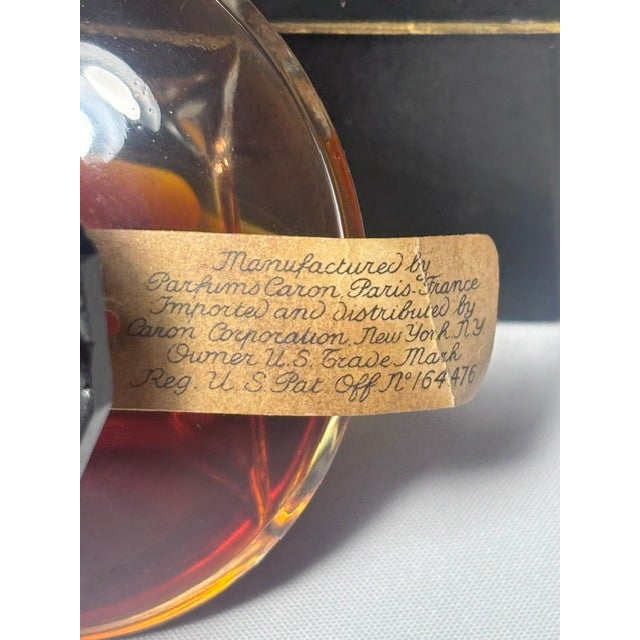 Manufactured by
Parfums Caron, Paris-France
Imported and distributed by
Caron Corporation, New York, N.Y
Owner U.S. Trade Mark
Reg. U S. Pat. Off Nº 164476